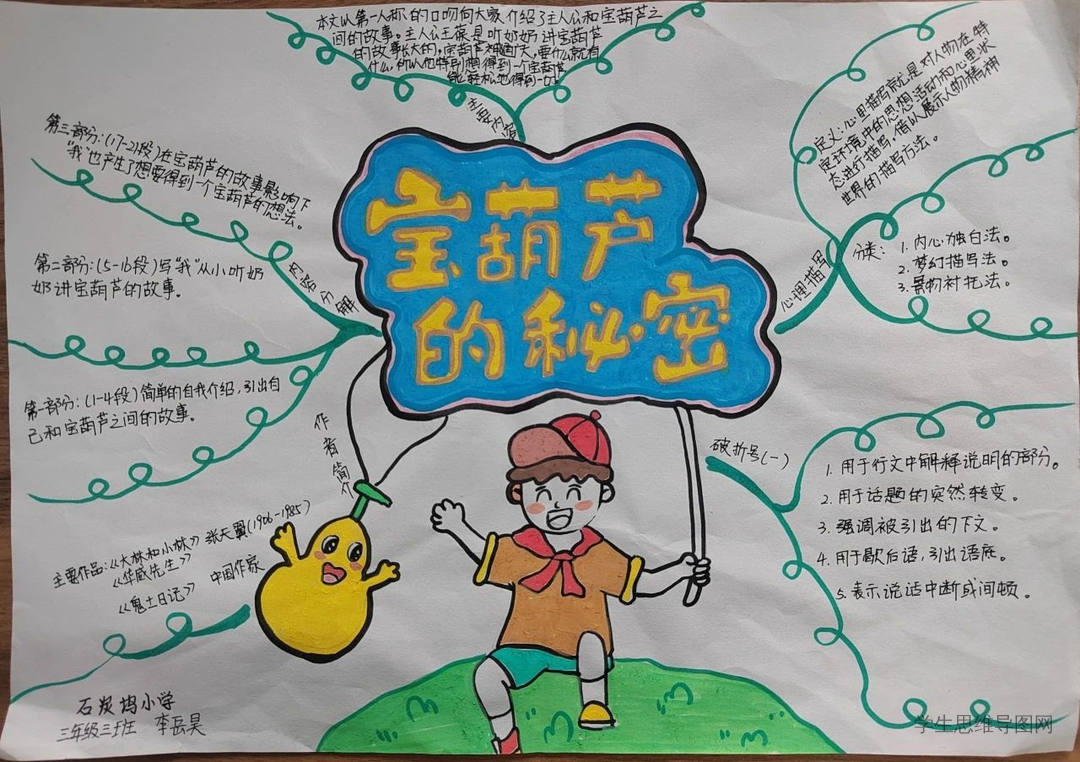 本文以第一人称的口吻向大家介绍了主人公和宝葫芦之
间的故事。主人公王葆是听奶奶讲宝葫芦
的故事长大的，宝葫芦神通广大，要什么就有
什么，所以他特别想得到一个宝葫芦
能轻松地得到一切
主要内容
宝葫芦
的秘密
第三部分：(17-21段)在宝葫芦的故事影响下
“我”也产生了想要得到一个宝葫芦的想法。
第二部分：(5-16段)写“我”从小听奶
奶讲宝葫芦的故事。
第一部分：(1-4段)简单的自我介绍，引出自
己和宝葫芦之间的故事。
内容分解
定义：心里描写就是对人物在特
定环境中的思想活动和心里状
态进行描写，借以展示人物精神
世界的描写方法。
心理描写
分类：
1. 内心独白法。
2. 梦幻描写法。
3. 景物衬托法。
作者简介
张天翼(1906-1985)
主要作品：《大林和小林》
《华威先生》
《鬼土日记》
中国作家
破折号(一)
1. 用于行文中解释说明的部分。
2. 用于话题的突然转变。
3. 强调被引出的下文。
4. 用于歇后语，引出语底。
5. 表示说话中断或间顿。
石炭坞小学
三年级三班 李岳昊
学生思维导图网